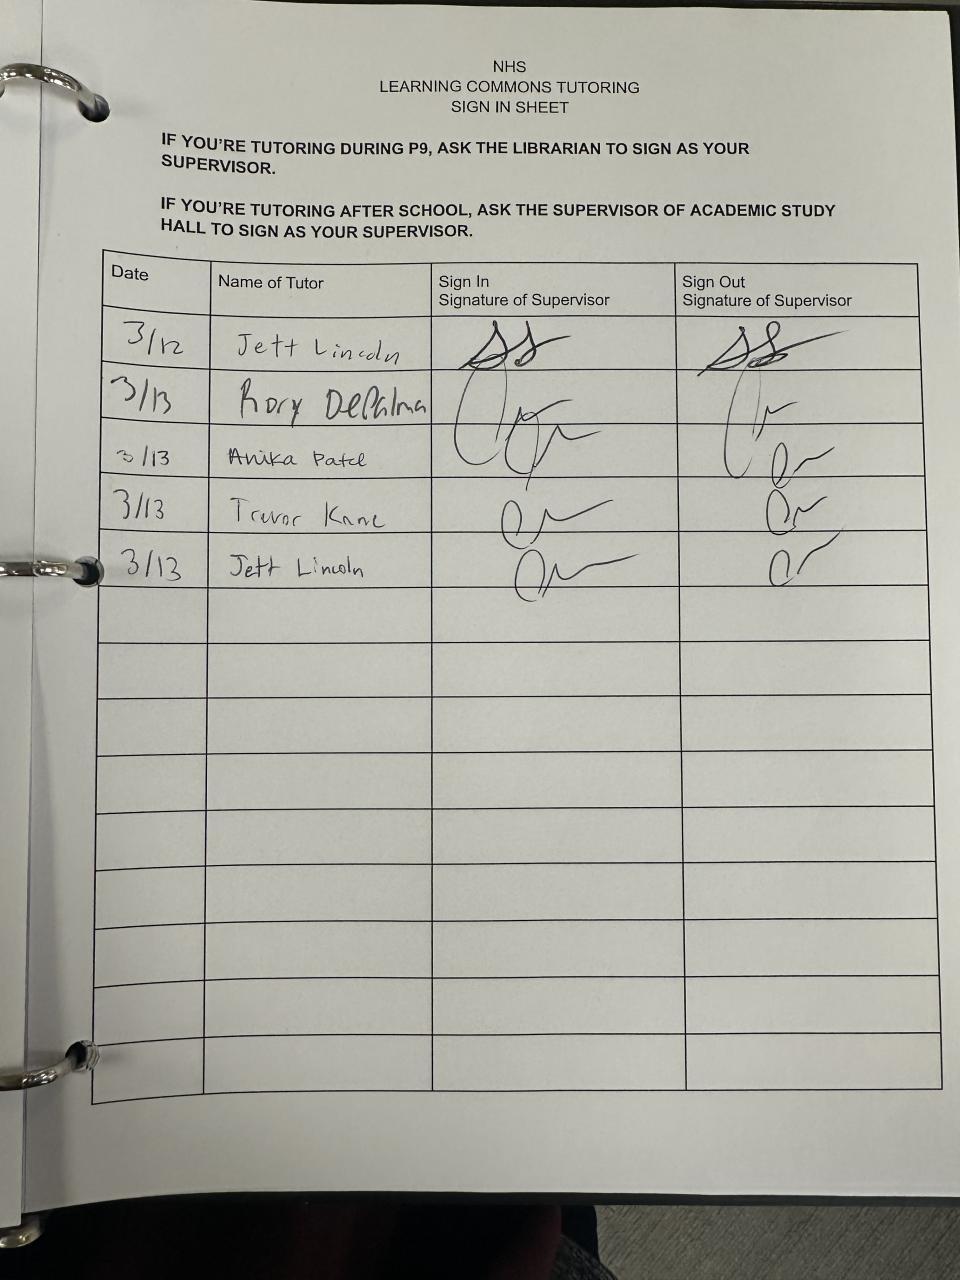 NHS
LEARNING COMMONS TUTORING
SIGN IN SHEET
IF YOU'RE TUTORING DURING P9, ASK THE LIBRARIAN TO SIGN AS YOUR
SUPERVISOR.
IF YOU'RE TUTORING AFTER SCHOOL, ASK THE SUPERVISOR OF ACADEMIC STUDY
HALL TO SIGN AS YOUR SUPERVISOR.
Date Name of Tutor Sign In Signature of Supervisor Sign Out Signature of Supervisor
3/12 Jett Lincoln
3/13 Rory DePalma
3/13 Anika Patel
3/13 Trevor Kane
3/13 Jett Lincoln